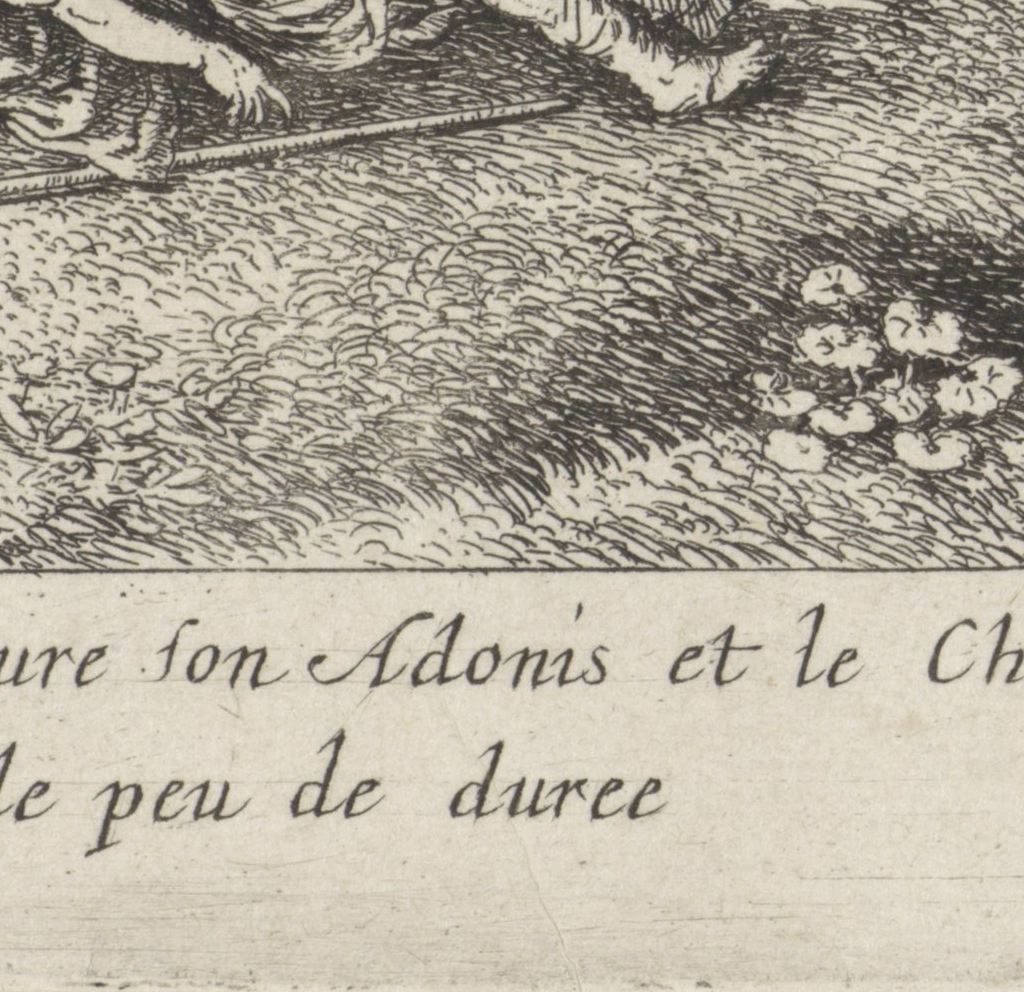 ure son Adonis et le Ch
de peu de duree